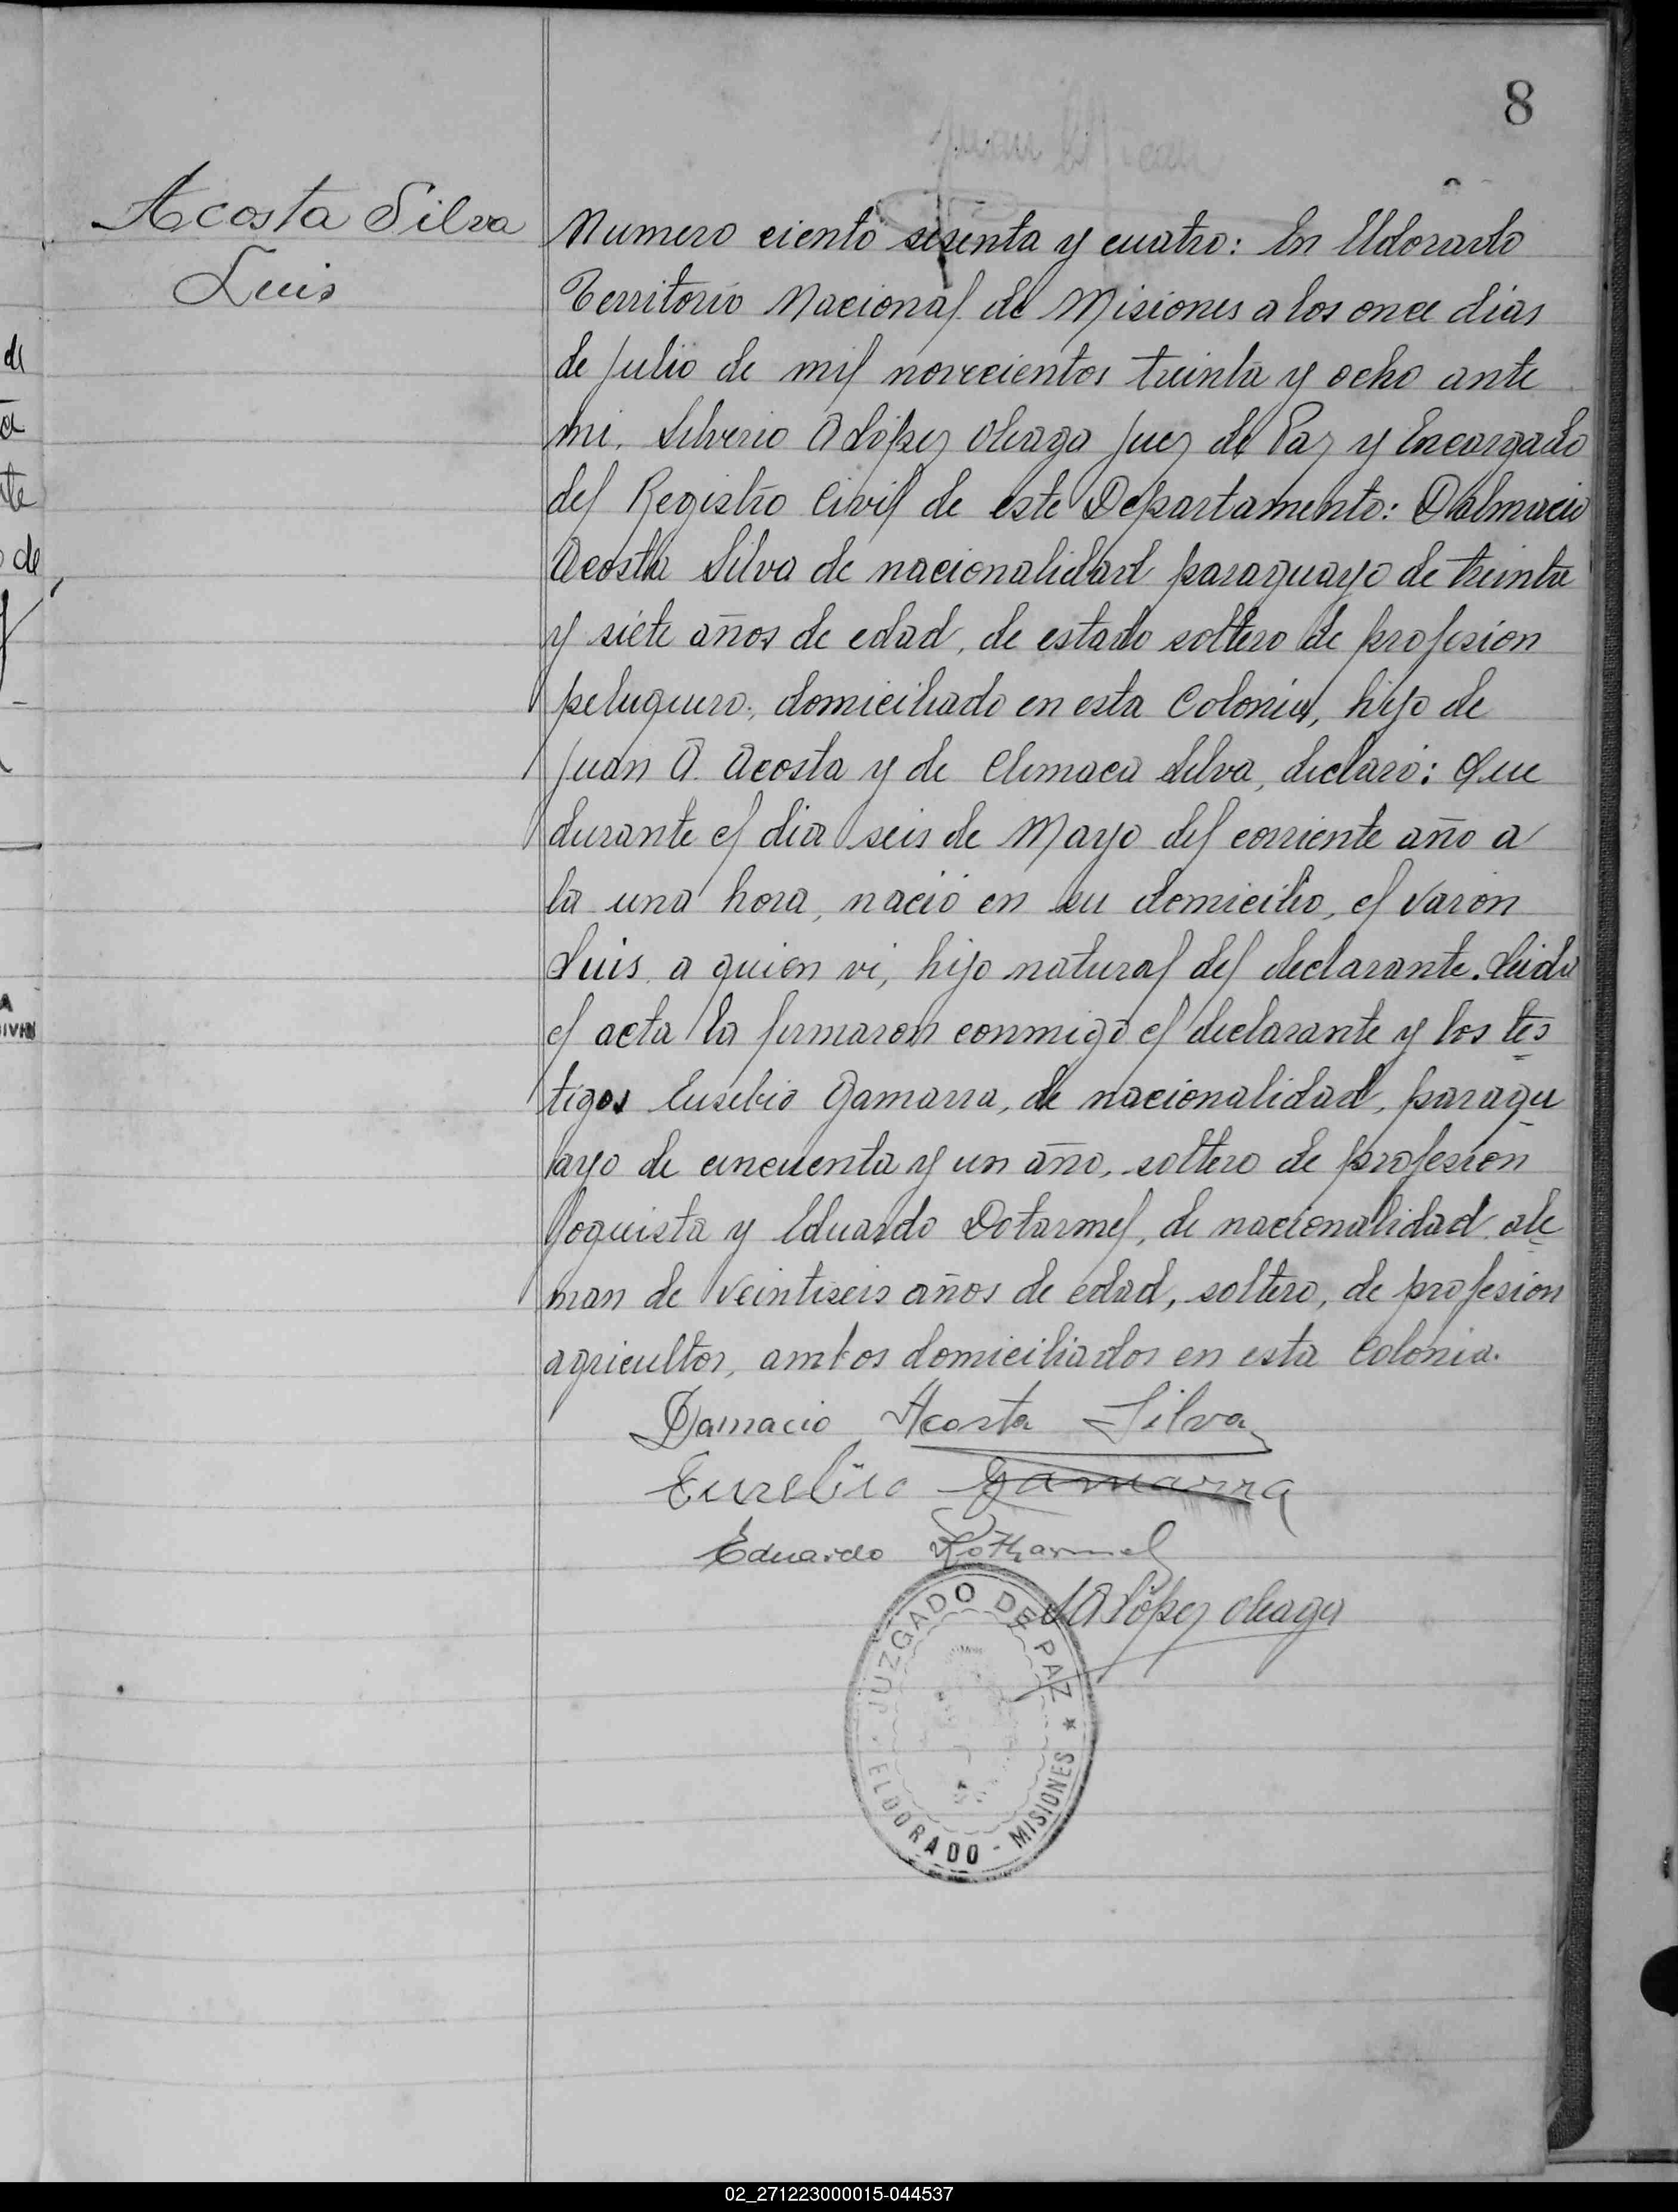 8
Acosta Silva
Luis
Numero ciento sesenta y cuatro: En Eldorado
Territorio Nacional de Misiones a los once dias
de Julio de mil novecientos treinta y ocho ante
mi, Silverio A López Oleaga Juez de Paz y Encargado
del Registro Civil de este Departamento: Dalmacio
Acosta Silva de nacionalidad paraguayo de treinta
y siete años de edad, de estado soltero de profesion
peluquero, domiciliado en esta Colonia, hijo de
Juan A. Acosta y de Climaca Silva, declaró: Que
durante el dia seis de Mayo del corriente año a
la una hora, nació en su domicilio, el varon
Luis a quien vi, hijo natural del declarante. Leida
el acta la firmaron conmigo el declarante y los tes
tigos Eusebio Gamarra, de nacionalidad, paragu
ayo de cincuenta y un año, soltero de profesion
foguista y Eduardo Dotarmel, de nacionalidad ale
man de veintiseis años de edad, soltero, de profesion
agricultor, ambos domiciliados en esta Colonia.
Damacio Acosta Silva
Eusebio Gamarra
Eduardo Rotharmel
SA López Oleaga
JUZGADO DE PAZ ★
ELDORADO - MISIONES
de
nte
de
02_271223000015-044537